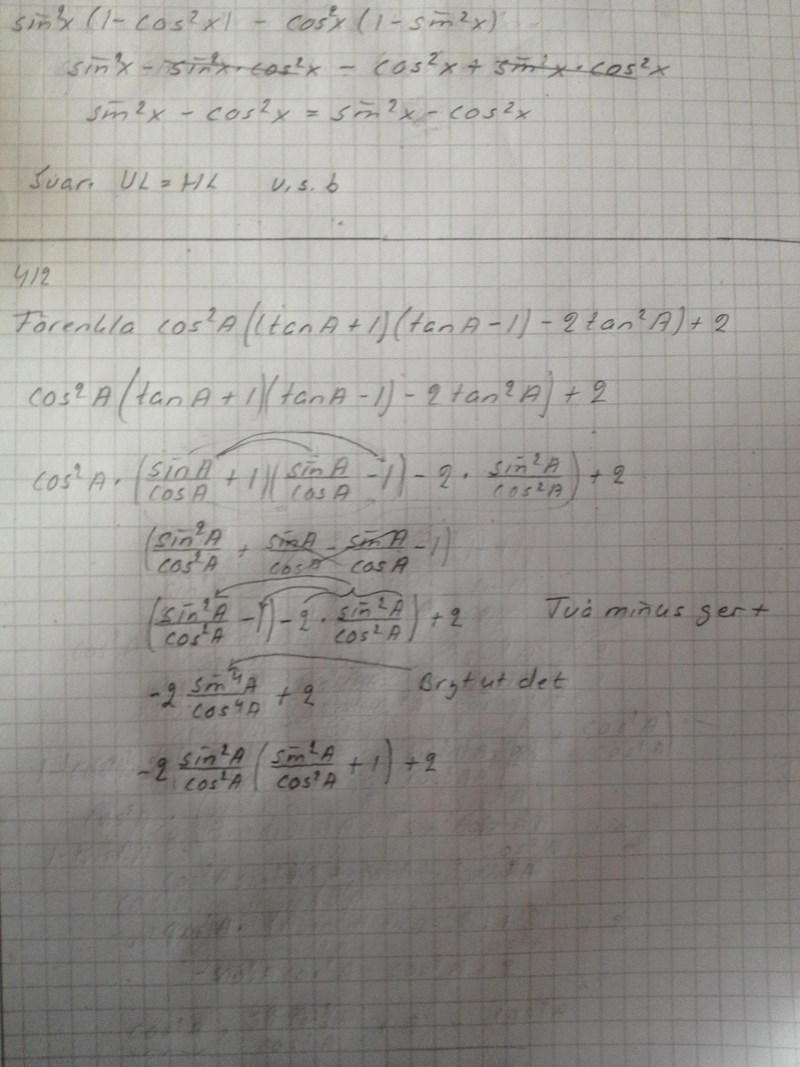 sin²x (1 - cos²x) - cos²x (1 - sin²x)
sin²x - sin²x · cos²x - cos²x + sin²x · cos²x
sin²x - cos²x = sin²x - cos²x
Svar. VL = HL v.s.b
412
Förenkla cos²A((tanA+1)(tanA-1) - 2tan²A) + 2
cos²A(tanA+1)(tanA-1) - 2tan²A) + 2
cos²A · (sinA/cosA + 1)(sinA/cosA - 1) - 2 · sin²A/cos²A) + 2
(sin²A/cos²A + sinA/cosA - sinA/cosA - 1)
(sin²A/cos²A - 1) - 2 · sin²A/cos²A) + 2 Två minus ger +
-2 sin⁴A/cos⁴A + 2 Bryt ut det
-2 sin²A/cos²A (sin²A/cos²A + 1) + 2